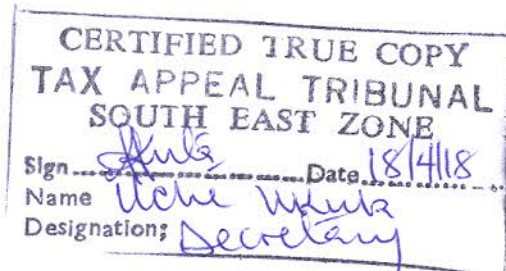 CERTIFIED TRUE COPY
TAX APPEAL TRIBUNAL
SOUTH EAST ZONE
Sign ........ Date 18/4/18
Name Uche
Designation; Secretary